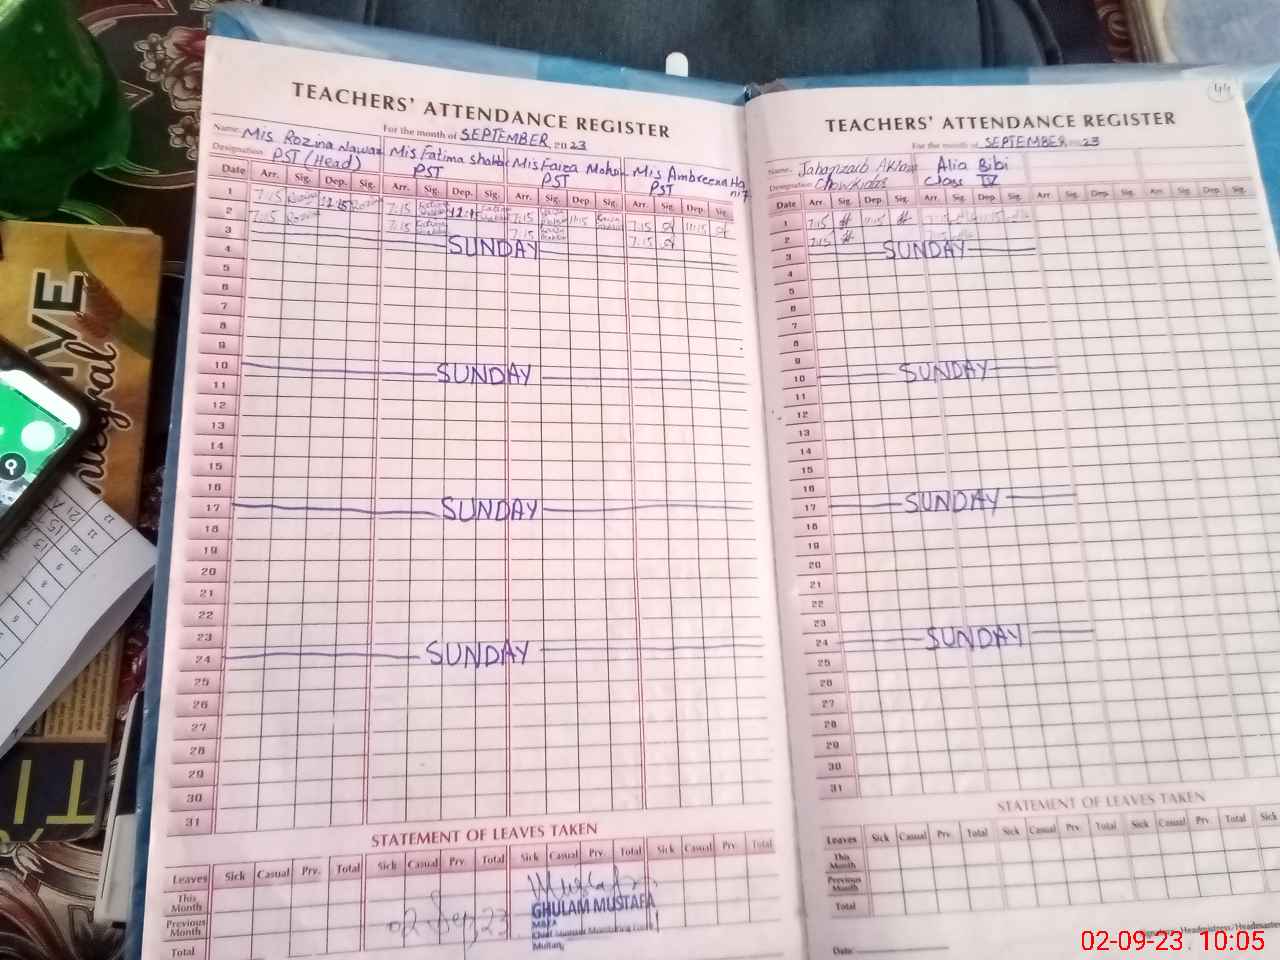 TEACHERS' ATTENDANCE REGISTER
For the month of SEPTEMBER 2023
Name. Mis Rozina Nawaz Mis Fatima Mis Faiza Mis Ambreena
Designation PST (Head) PST PST PST
Date Arr. Sig. Dep. Sig. Arr. Sig. Dep. Sig. Arr. Sig. Dep. Sig. Arr. Sig. Dep. Sig.
1 7:15 Rozina 12:15 Rozina 7:15 12:15 7:15 11:15 7:15 11:15
2 7:15 Rozina 7:15 7:15 7:15
3 SUNDAY
4
5
6
7
8
9
10 SUNDAY
11
12
13
14
15
16
17 SUNDAY
18
19
20
21
22
23
24 SUNDAY
25
26
27
28
29
30
31
STATEMENT OF LEAVES TAKEN
Leaves Sick Casual Prv. Total Sick Casual Prv. Total Sick Casual Prv. Total Sick Casual Prv. Total
This Month
Previous Month
Total
02-Sep-23
GHULAM MUSTAFA
Multan
44
TEACHERS' ATTENDANCE REGISTER
For the month of SEPTEMBER 2023
Name. Jahanzaib Alia Bibi
Designation Chowkidar Class IV
Date Arr. Sig. Dep. Sig. Arr. Sig. Dep Sig. Arr. Sig. Dep. Sig. Arr. Sig. Dep. Sig.
1 7:15 11:15 7:15 11:15
2 7:15 7:15
3 SUNDAY
4
5
6
7
8
9
10 SUNDAY
11
12
13
14
15
16
17 SUNDAY
18
19
20
21
22
23
24 SUNDAY
25
26
27
28
29
30
31
STATEMENT OF LEAVES TAKEN
Leaves Sick Casual Prv. Total Sick Casual Prv. Total Sick Casual Prv. Total Sick
This Month
Previous Month
Total
Headmistress/Headmaster
Date:
02-09-23 10:05